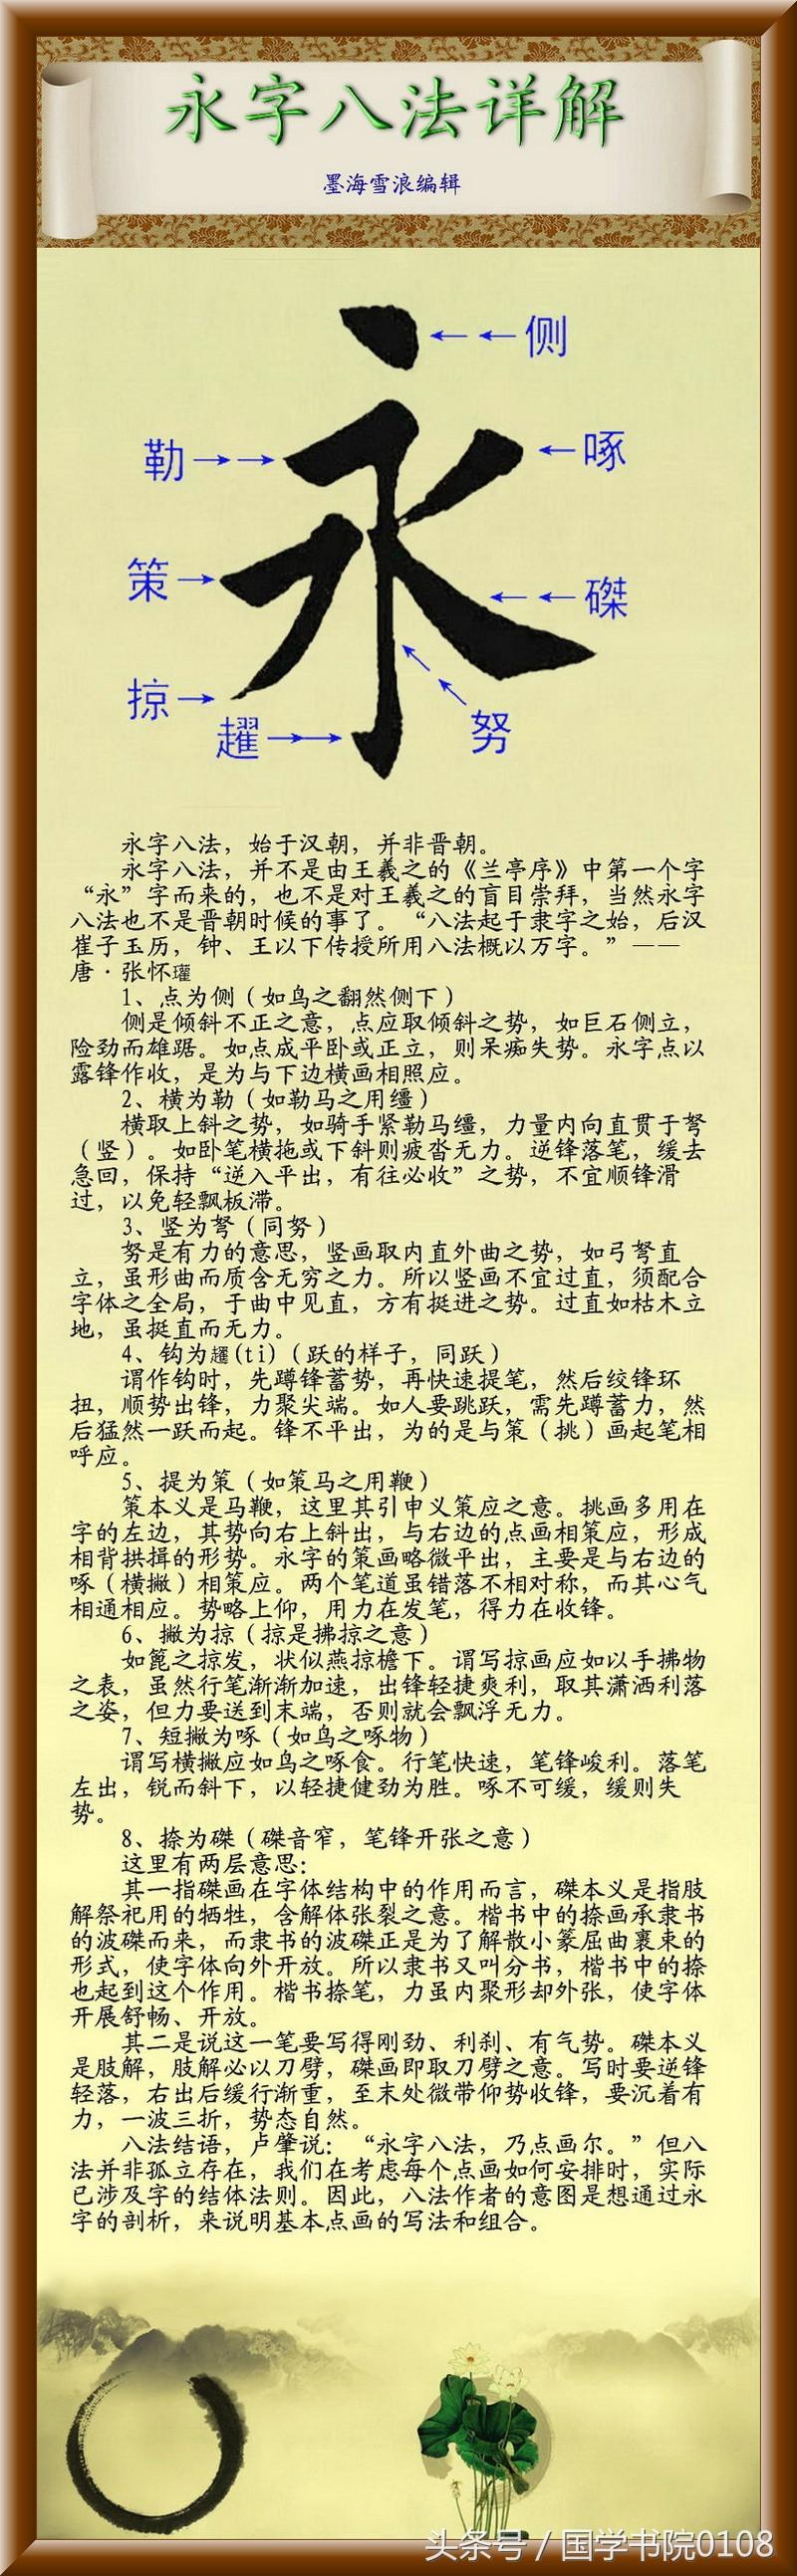 永字八法详解
墨海雪浪编辑
侧
勒
啄
策
磔
掠
趯
努
永字八法，始于汉朝，并非晋朝。
永字八法，并不是由王羲之的《兰亭序》中第一个字
“永”字而来的，也不是对王羲之的盲目崇拜，当然永字
八法也不是晋朝时候的事了。“八法起于隶字之始，后汉
崔子玉历，钟、王以下传授所用八法概以万字。”——
唐·张怀瓘
1、点为侧（如鸟之翻然侧下）
侧是倾斜不正之意，点应取倾斜之势，如巨石侧立，
险劲而雄踞。如点成平卧或正立，则呆痴失势。永字点以
露锋作收，是为与下边横画相照应。
2、横为勒（如勒马之用缰）
横取上斜之势，如骑手紧勒马缰，力量内向直贯于弩
（竖）。如卧笔横拖或下斜则疲沓无力。逆锋落笔，缓去
急回，保持“逆入平出，有往必收”之势，不宜顺锋滑
过，以免轻飘板滞。
3、竖为弩（同努）
努是有力的意思，竖画取内直外曲之势，如弓弩直
立，虽形曲而质含无穷之力。所以竖画不宜过直，须配合
字体之全局，于曲中见直，方有挺进之势。过直如枯木立
地，虽挺直而无力。
4、钩为趯(ti)（跃的样子，同跃）
谓作钩时，先蹲锋蓄势，再快速提笔，然后绞锋环
扭，顺势出锋，力聚尖端。如人要跳跃，需先蹲蓄力，然
后猛然一跃而起。锋不平出，为的是与策（挑）画起笔相
呼应。
5、提为策（如策马之用鞭）
策本义是马鞭，这里其引申义策应之意。挑画多用在
字的左边，其势向右上斜出，与右边的点画相策应，形成
相背拱揖的形势。永字的策画略微平出，主要是与右边的
啄（横撇）相策应。两个笔道虽错落不相对称，而其心气
相通相应。势略上仰，用力在发笔，得力在收锋。
6、撇为掠（掠是拂掠之意）
如篦之掠发，状似燕掠檐下。谓写掠画应如以手拂物
之表，虽然行笔渐渐加速，出锋轻捷爽利，取其潇洒利落
之姿，但力要送到末端，否则就会飘浮无力。
7、短撇为啄（如鸟之啄物）
谓写横撇应如鸟之啄食。行笔快速，笔锋峻利。落笔
左出，锐而斜下，以轻捷健劲为胜。啄不可缓，缓则失
势。
8、捺为磔（磔音窄，笔锋开张之意）
这里有两层意思：
其一指磔画在字体结构中的作用而言，磔本义是指肢
解祭祀用的牺牲，含解体张裂之意。楷书中的捺画承隶书
的波磔而来，而隶书的波磔正是为了解散小篆屈曲裹束的
形式，使字体向外开放。所以隶书又叫分书，楷书中的捺
也起到这个作用。楷书捺笔，力虽内聚形却外张，使字体
开展舒畅、开放。
其二是说这一笔要写得刚劲、利刹、有气势。磔本义
是肢解，肢解必以刀劈，磔画即取刀劈之意。写时要逆锋
轻落，右出后缓行渐重，至末处微带仰势收锋，要沉着有
力，一波三折，势态自然。
八法结语，卢肇说：“永字八法，乃点画尔。”但八
法并非孤立存在，我们在考虑每个点画如何安排时，实际
已涉及字的结体法则。因此，八法作者的意图是想通过永
字的剖析，来说明基本点画的写法和组合。
头条号 / 国学书院0108